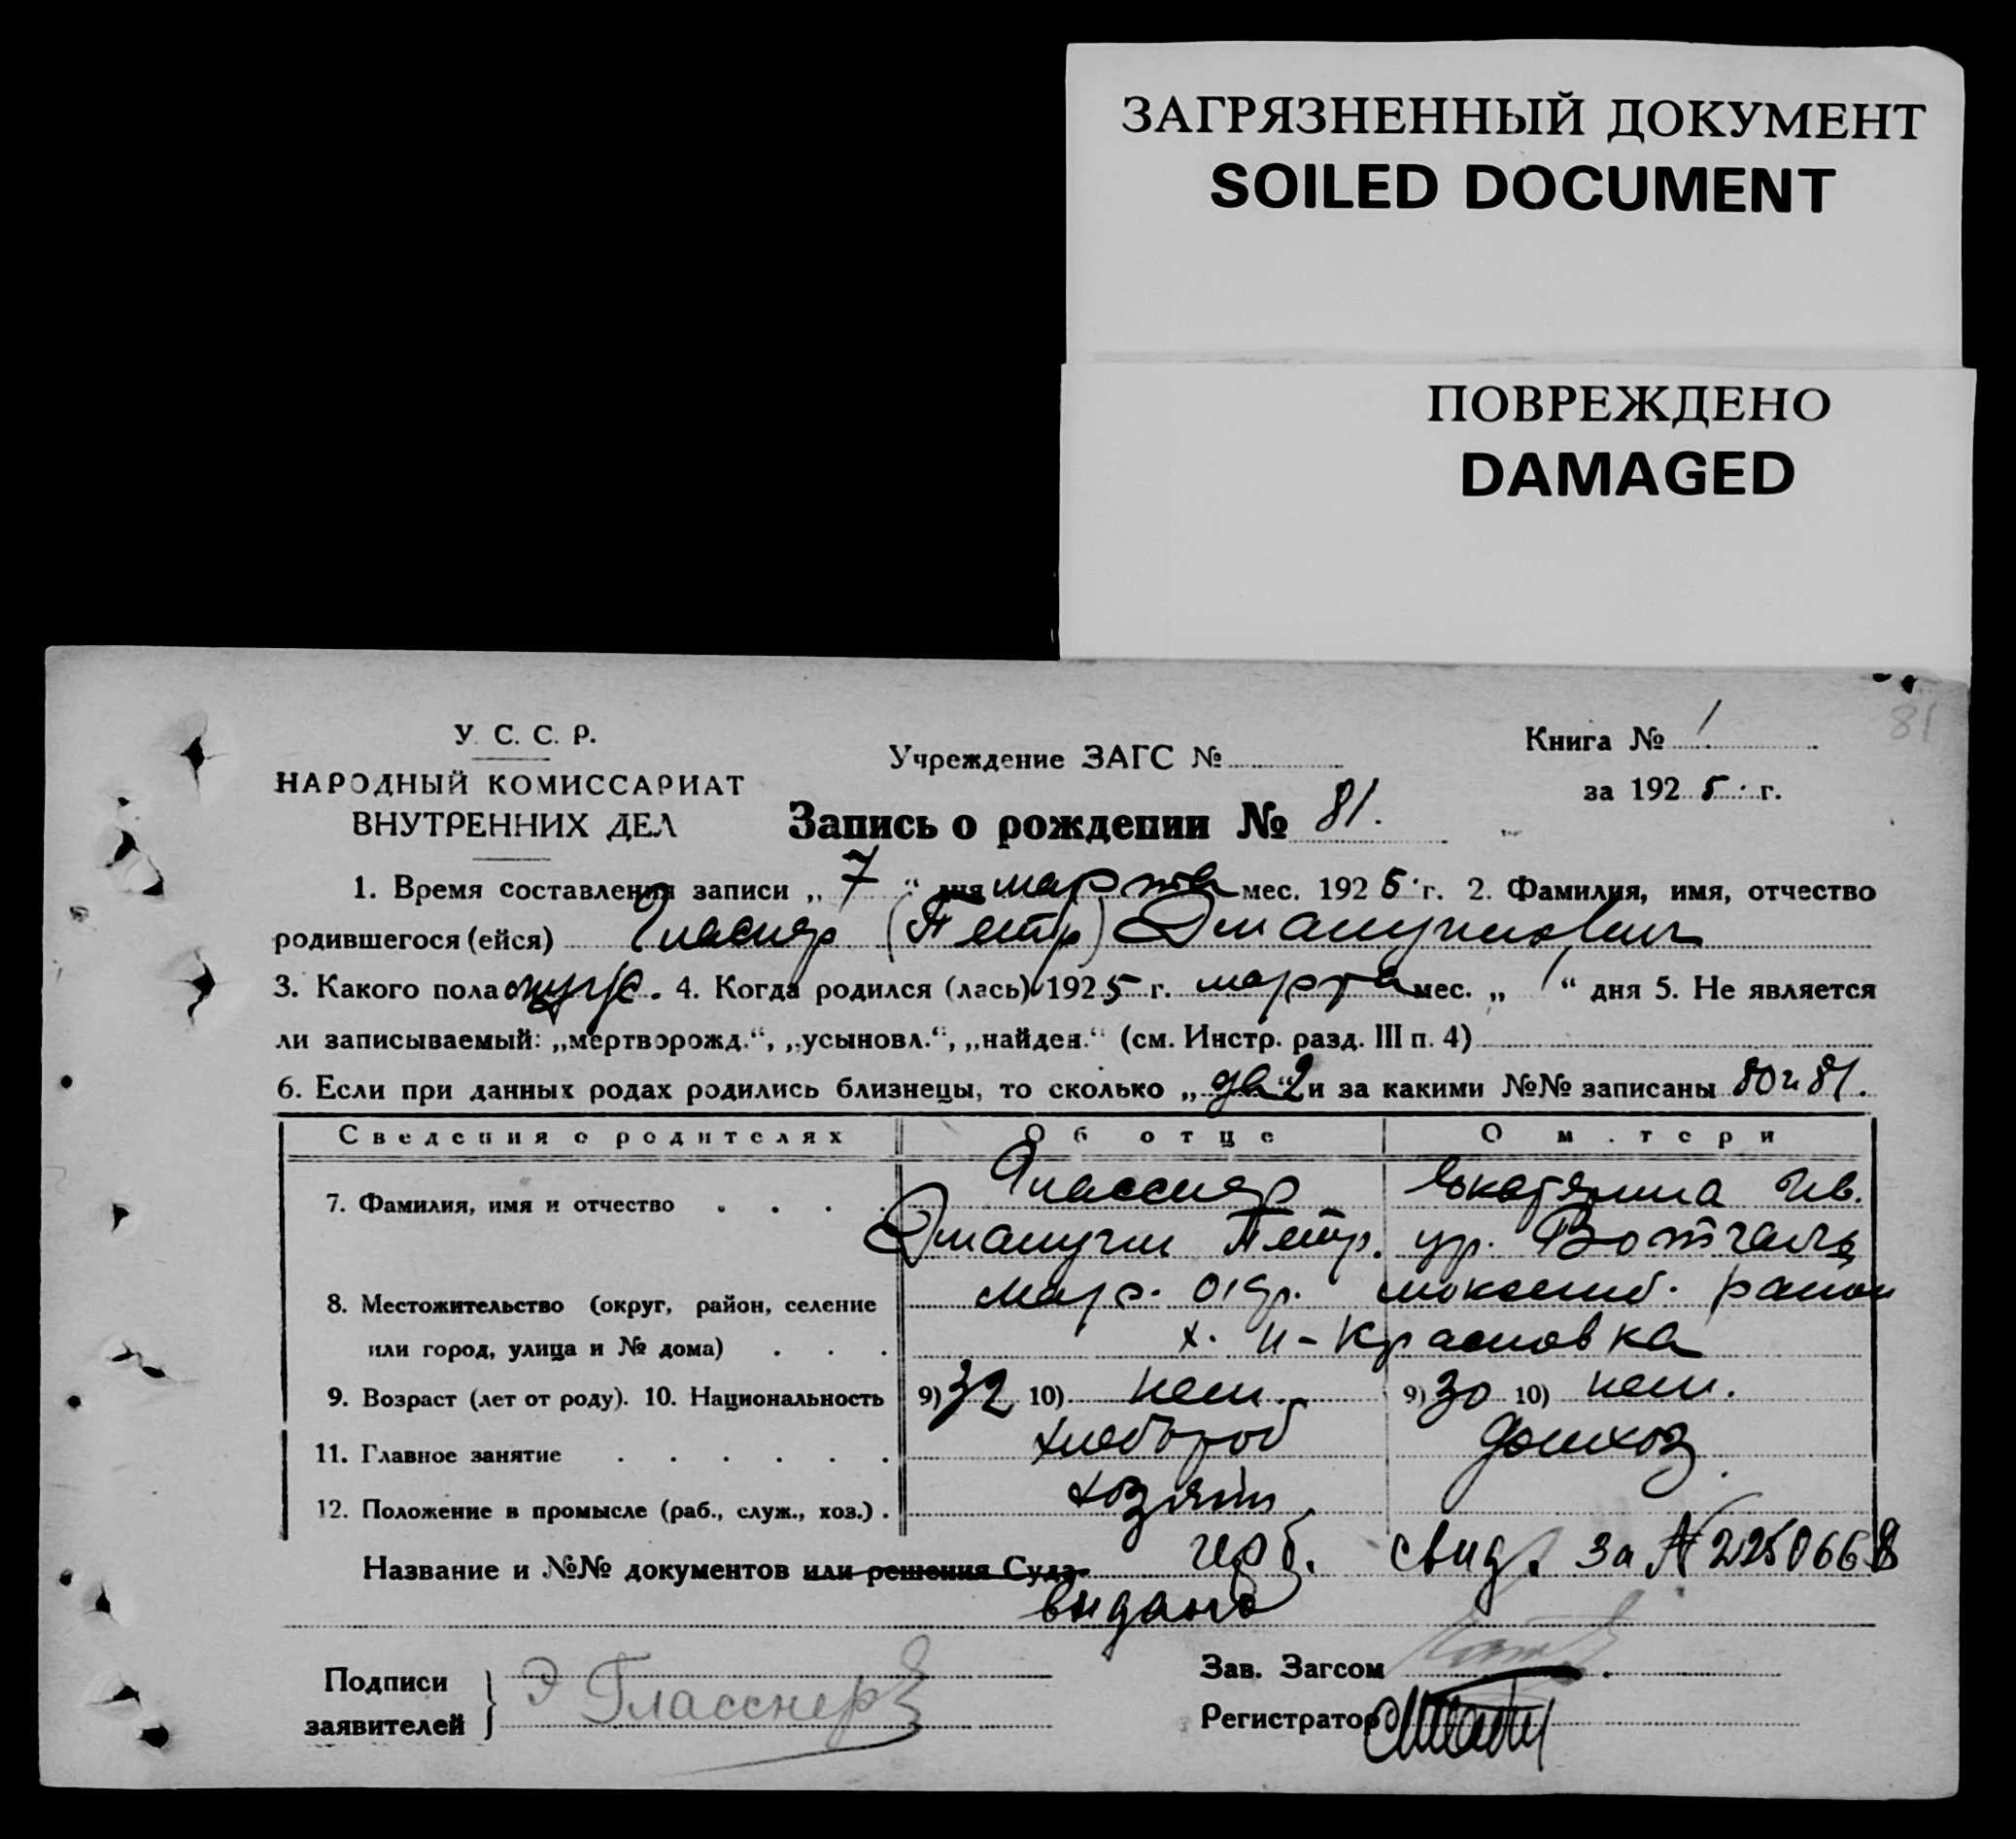 ЗАГРЯЗНЕННЫЙ ДОКУМЕНТ
SOILED DOCUMENT
ПОВРЕЖДЕНО
DAMAGED
81
У. С. С. Р.
НАРОДНЫЙ КОМИССАРИАТ
ВНУТРЕННИХ ДЕЛ
Учреждение ЗАГС №
Книга № 1
за 1925 г.
Запись о рождении № 81.
1. Время составления записи „ 7 “ дня марта мес. 1925 г. 2. Фамилия, имя, отчество
родившегося (ейся) Гласнер (Петр) Эмануилович
3. Какого пола мужс. 4. Когда родился (лась) 1925 г. марта мес. „ 1 “ дня 5. Не является
ли записываемый: „мертворожд.“, „усыновл.“, „найден.“ (см. Инстр. разд. III п. 4)
6. Если при данных родах родились близнецы, то сколько „ 2 “ и за какими №№ записаны 80 и 81.
Сведения о родителях Об отце О матери
7. Фамилия, имя и отчество Гласснер Екатерина Ив.
Эмануил Петр. ур.
8. Местожительство (округ, район, селение Мар. окр. район
или город, улица и № дома) х. Н-Красновка
9. Возраст (лет от роду). 10. Национальность 9) 32 10) нем. 9) 30 10) нем.
11. Главное занятие хлебороб домхоз
12. Положение в промысле (раб., служ., хоз.) хозяин
Название и №№ документов или решения Суда герб. свид. за № 2250668
выдано
Подписи
заявителей Э Гласснер
Зав. Загсом
Регистратор